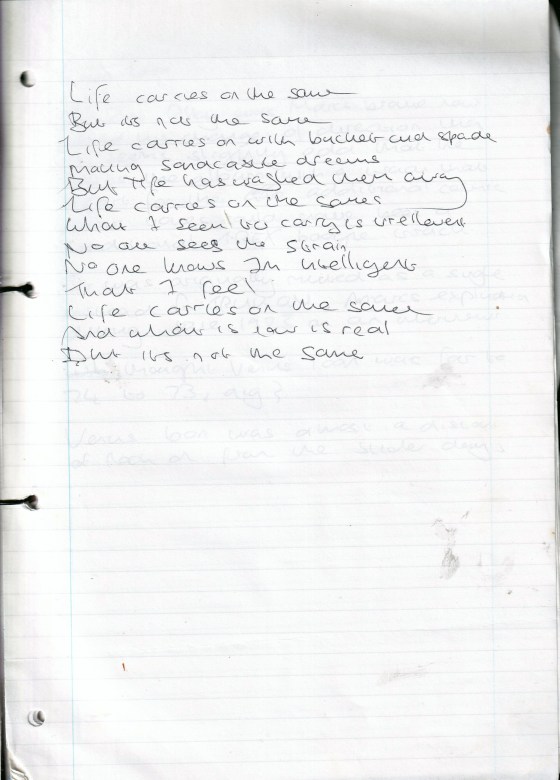 Life carries on the same
But its not the same
Life carries on with bucket and spade
making sandcastle dreams
But life has washed them away
Life carries on the same
What I seem to carry is irellevent
No one sees the strain
No one knows Im intelligent
That I feel
Life carries on the same
And what is law is real
But its not the same